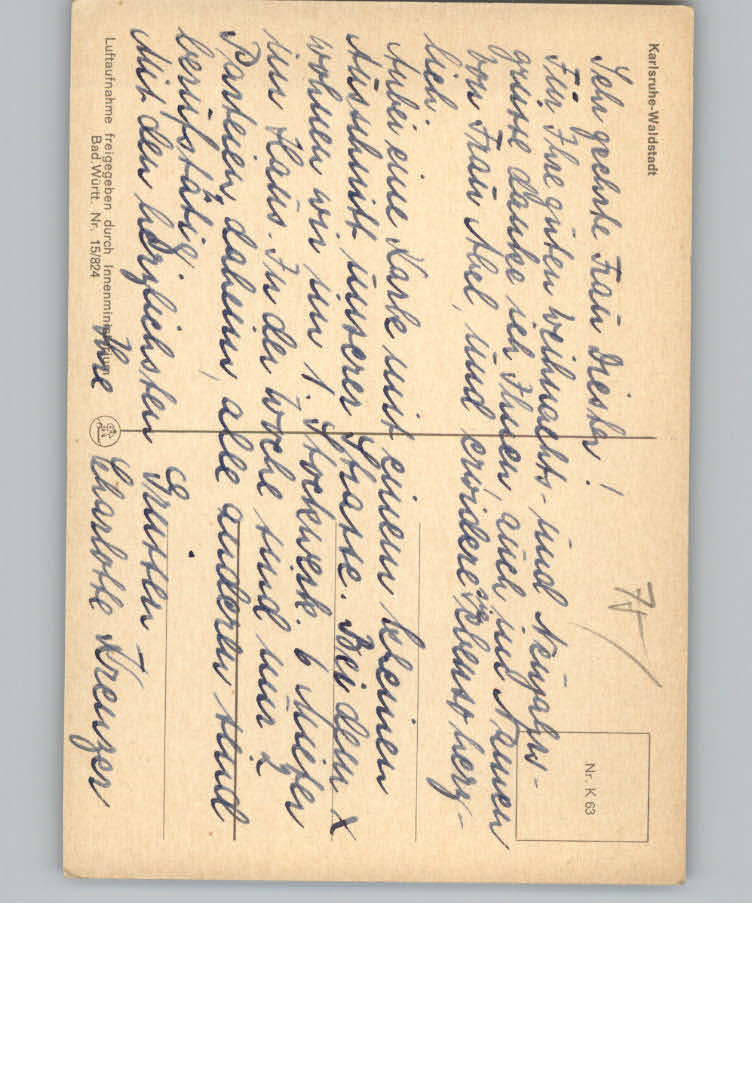 Karlsruhe-Waldstadt
Sehr geehrte Frau Diester!
Für Ihre guten Weihnachts- und Neujahrs-
grüsse danke ich Ihnen auch im Namen
von Frau Abel, und erwidere sie ebenso herz-
lich.
Anbei eine Karte mit einem kleinen
Ausschnitt unserer Strasse. Bei dem X
wohnen wir im 1. Stockwerk. 6 Mieter
im Haus. In der Woche sind nur 2
Parteien daheim, alle anderen sind
berufstätig.
Mit den herzlichsten Grüssen
Ihre Charlotte Kreuzer
75
Nr. K 63
Luftaufnahme freigegeben durch Innenministerium
Bad.Württ. Nr. 15/824